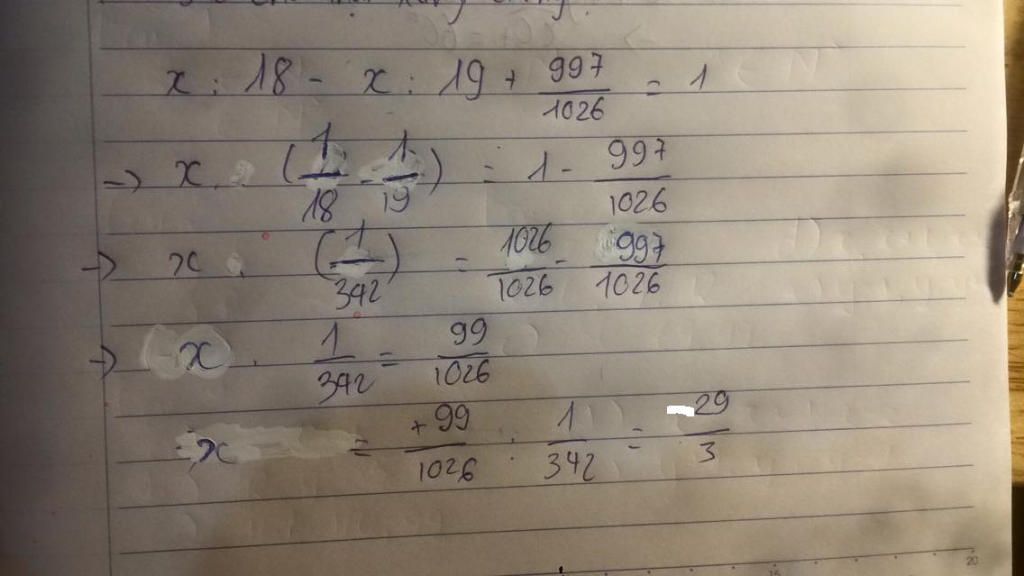 x : 18 - x : 19 + 997/1026 = 1
-> x . (1/18 - 1/19) = 1 - 997/1026
-> x . (1/342) = 1026/1026 - 997/1026
-> x . 1/342 = 99/1026
x = +99/1026 : 1/342 = 29/3
15 20